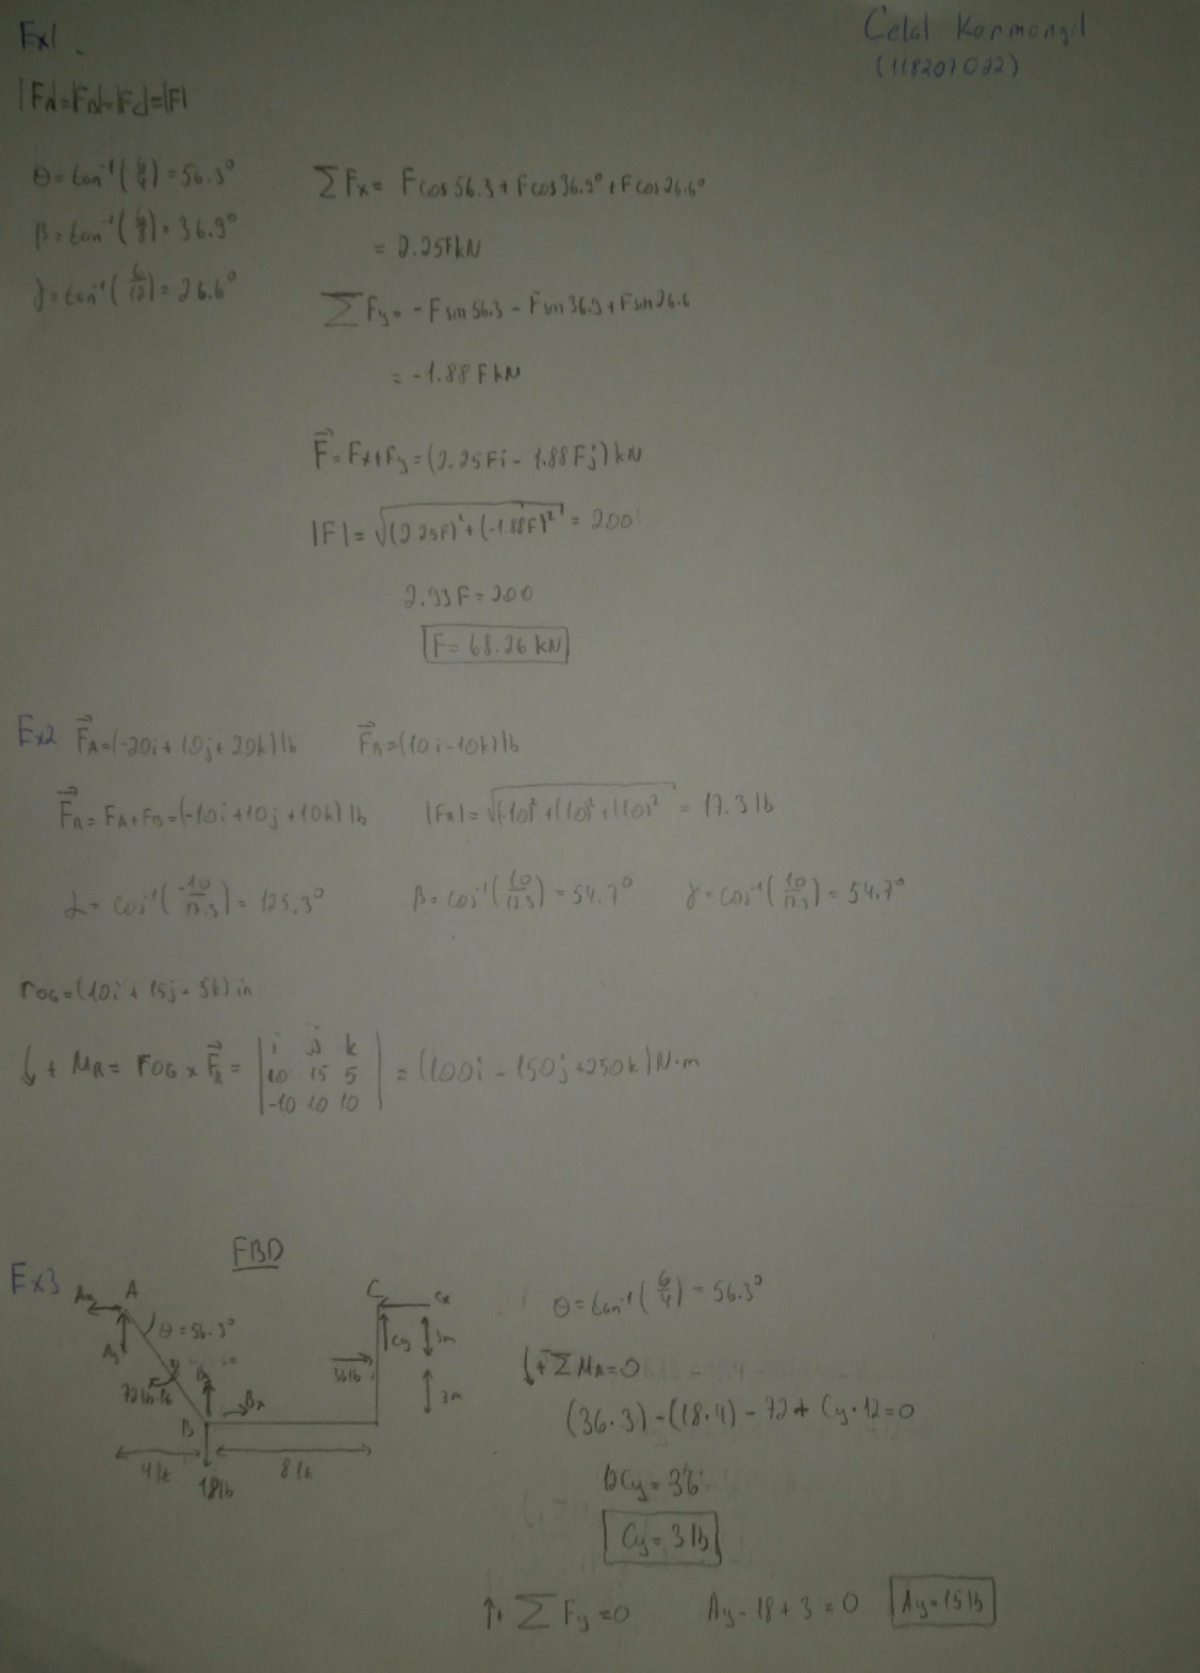 Ex1.
Celal Kermongil
(118207022)
|FA|=|FB|=|FC|=|F|
θ=tan⁻¹(6/4)=56.3°
β=tan⁻¹(6/8)=36.9°
γ=tan⁻¹(6/12)=26.6°
ΣFx= Fcos56.3+Fcos36.9°+Fcos26.6°
= 2.25FkN
ΣFy=-Fsin56.3-Fsin36.9+Fsin26.6
=-1.88FkN
F=Fx+Fy=(2.25Fi-1.88Fj)kN
|F|=√(2.25F)²+(-1.88F)²=200
2.93F=200
F=68.26kN
Ex2 FA=(-20i+10j+20k)lb FB=(10i-10k)lb
FR=FA+FB=(-10i+10j+10k)lb |FR|=√(-10)²+(10)²+(10)²=17.3lb
α=cos⁻¹(-10/17.3)=125.3° β=cos⁻¹(10/17.3)=54.7° γ=cos⁻¹(10/17.3)=54.7°
rOG=(10i+15j+5k)in
+ MR= rOG×FR= | i j k | =(100i-150j+250k)N.m
10 15 5
-10 10 10
Ex3 FBD
Ax A
θ=56.3°
Ay
72lb.ft
By
Bx
B
4ft
18lb
8ft
36lb
C
Cx
Cy
3m
3m
θ=tan⁻¹(6/4)=56.3°
+ΣMA=0
(36.3)-(18.4)-72+Cy.12=0
12Cy=36
Cy=3lb
↑+ΣFy=0 Ay-18+3=0 Ay=15lb